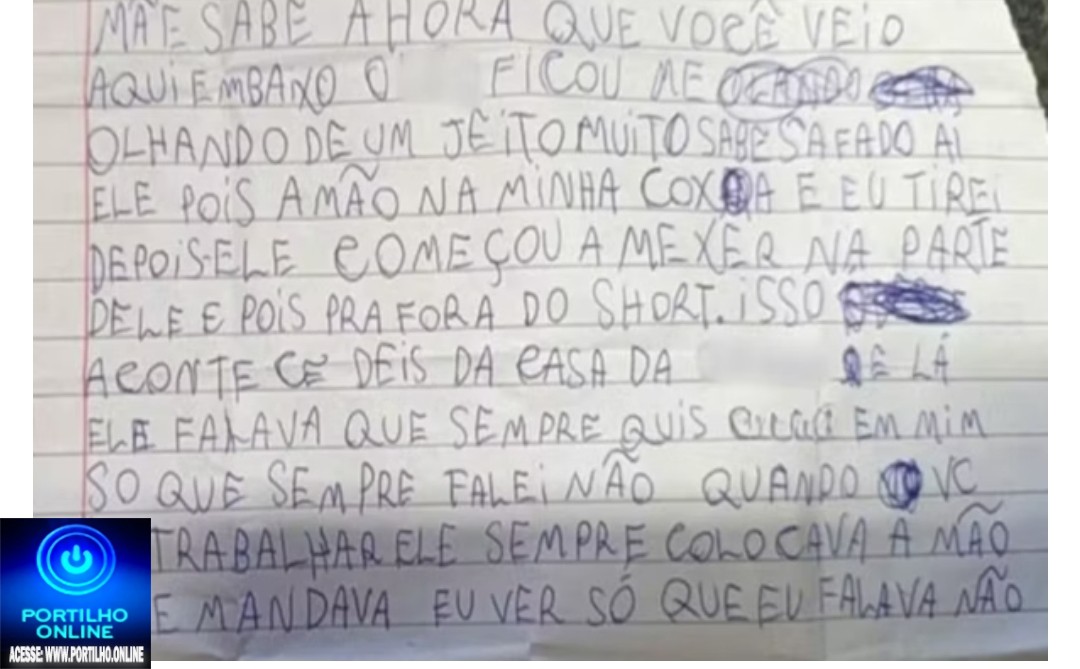 MÃE SABE A HORA QUE VOCÊ VEIO
AQUI EMBAIXO O FICOU ME
OLHANDO DE UM JEITO MUITO SABE SAFADO AI
ELE POIS A MÃO NA MINHA COXA E EU TIREI
DEPOIS ELE COMEÇOU A MEXER NA PARTE
DELE E POIS PRA FORA DO SHORT. ISSO
ACONTECE DEIS DA CASA DA E LÁ
ELE FALAVA QUE SEMPRE QUIS EM MIM
SO QUE SEMPRE FALEI NÃO QUANDO VC
TRABALHAR ELE SEMPRE COLOCAVA A MÃO
E MANDAVA EU VER SÓ QUE EU FALAVA NÃO
PORTILHO
ONLINE
ACESSE: WWW.PORTILHO.ONLINE